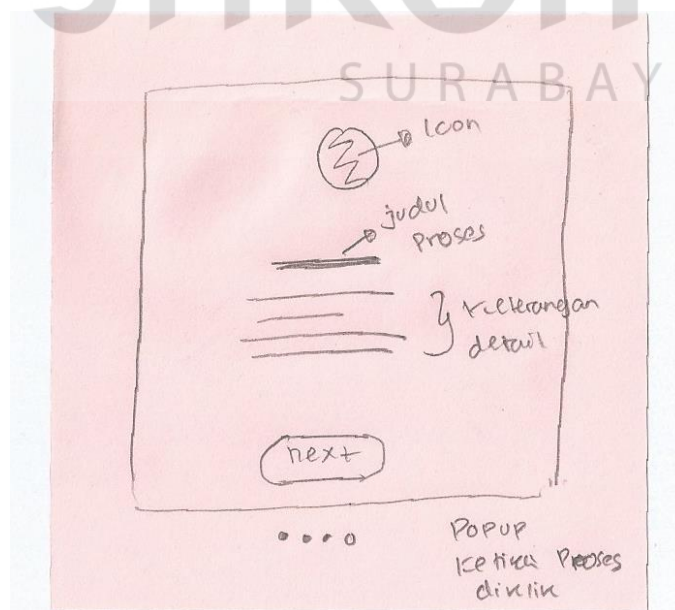 SURABAY
Icon
judul
proses
keterangan
detail
next
Popup
ketika Proses
diklik